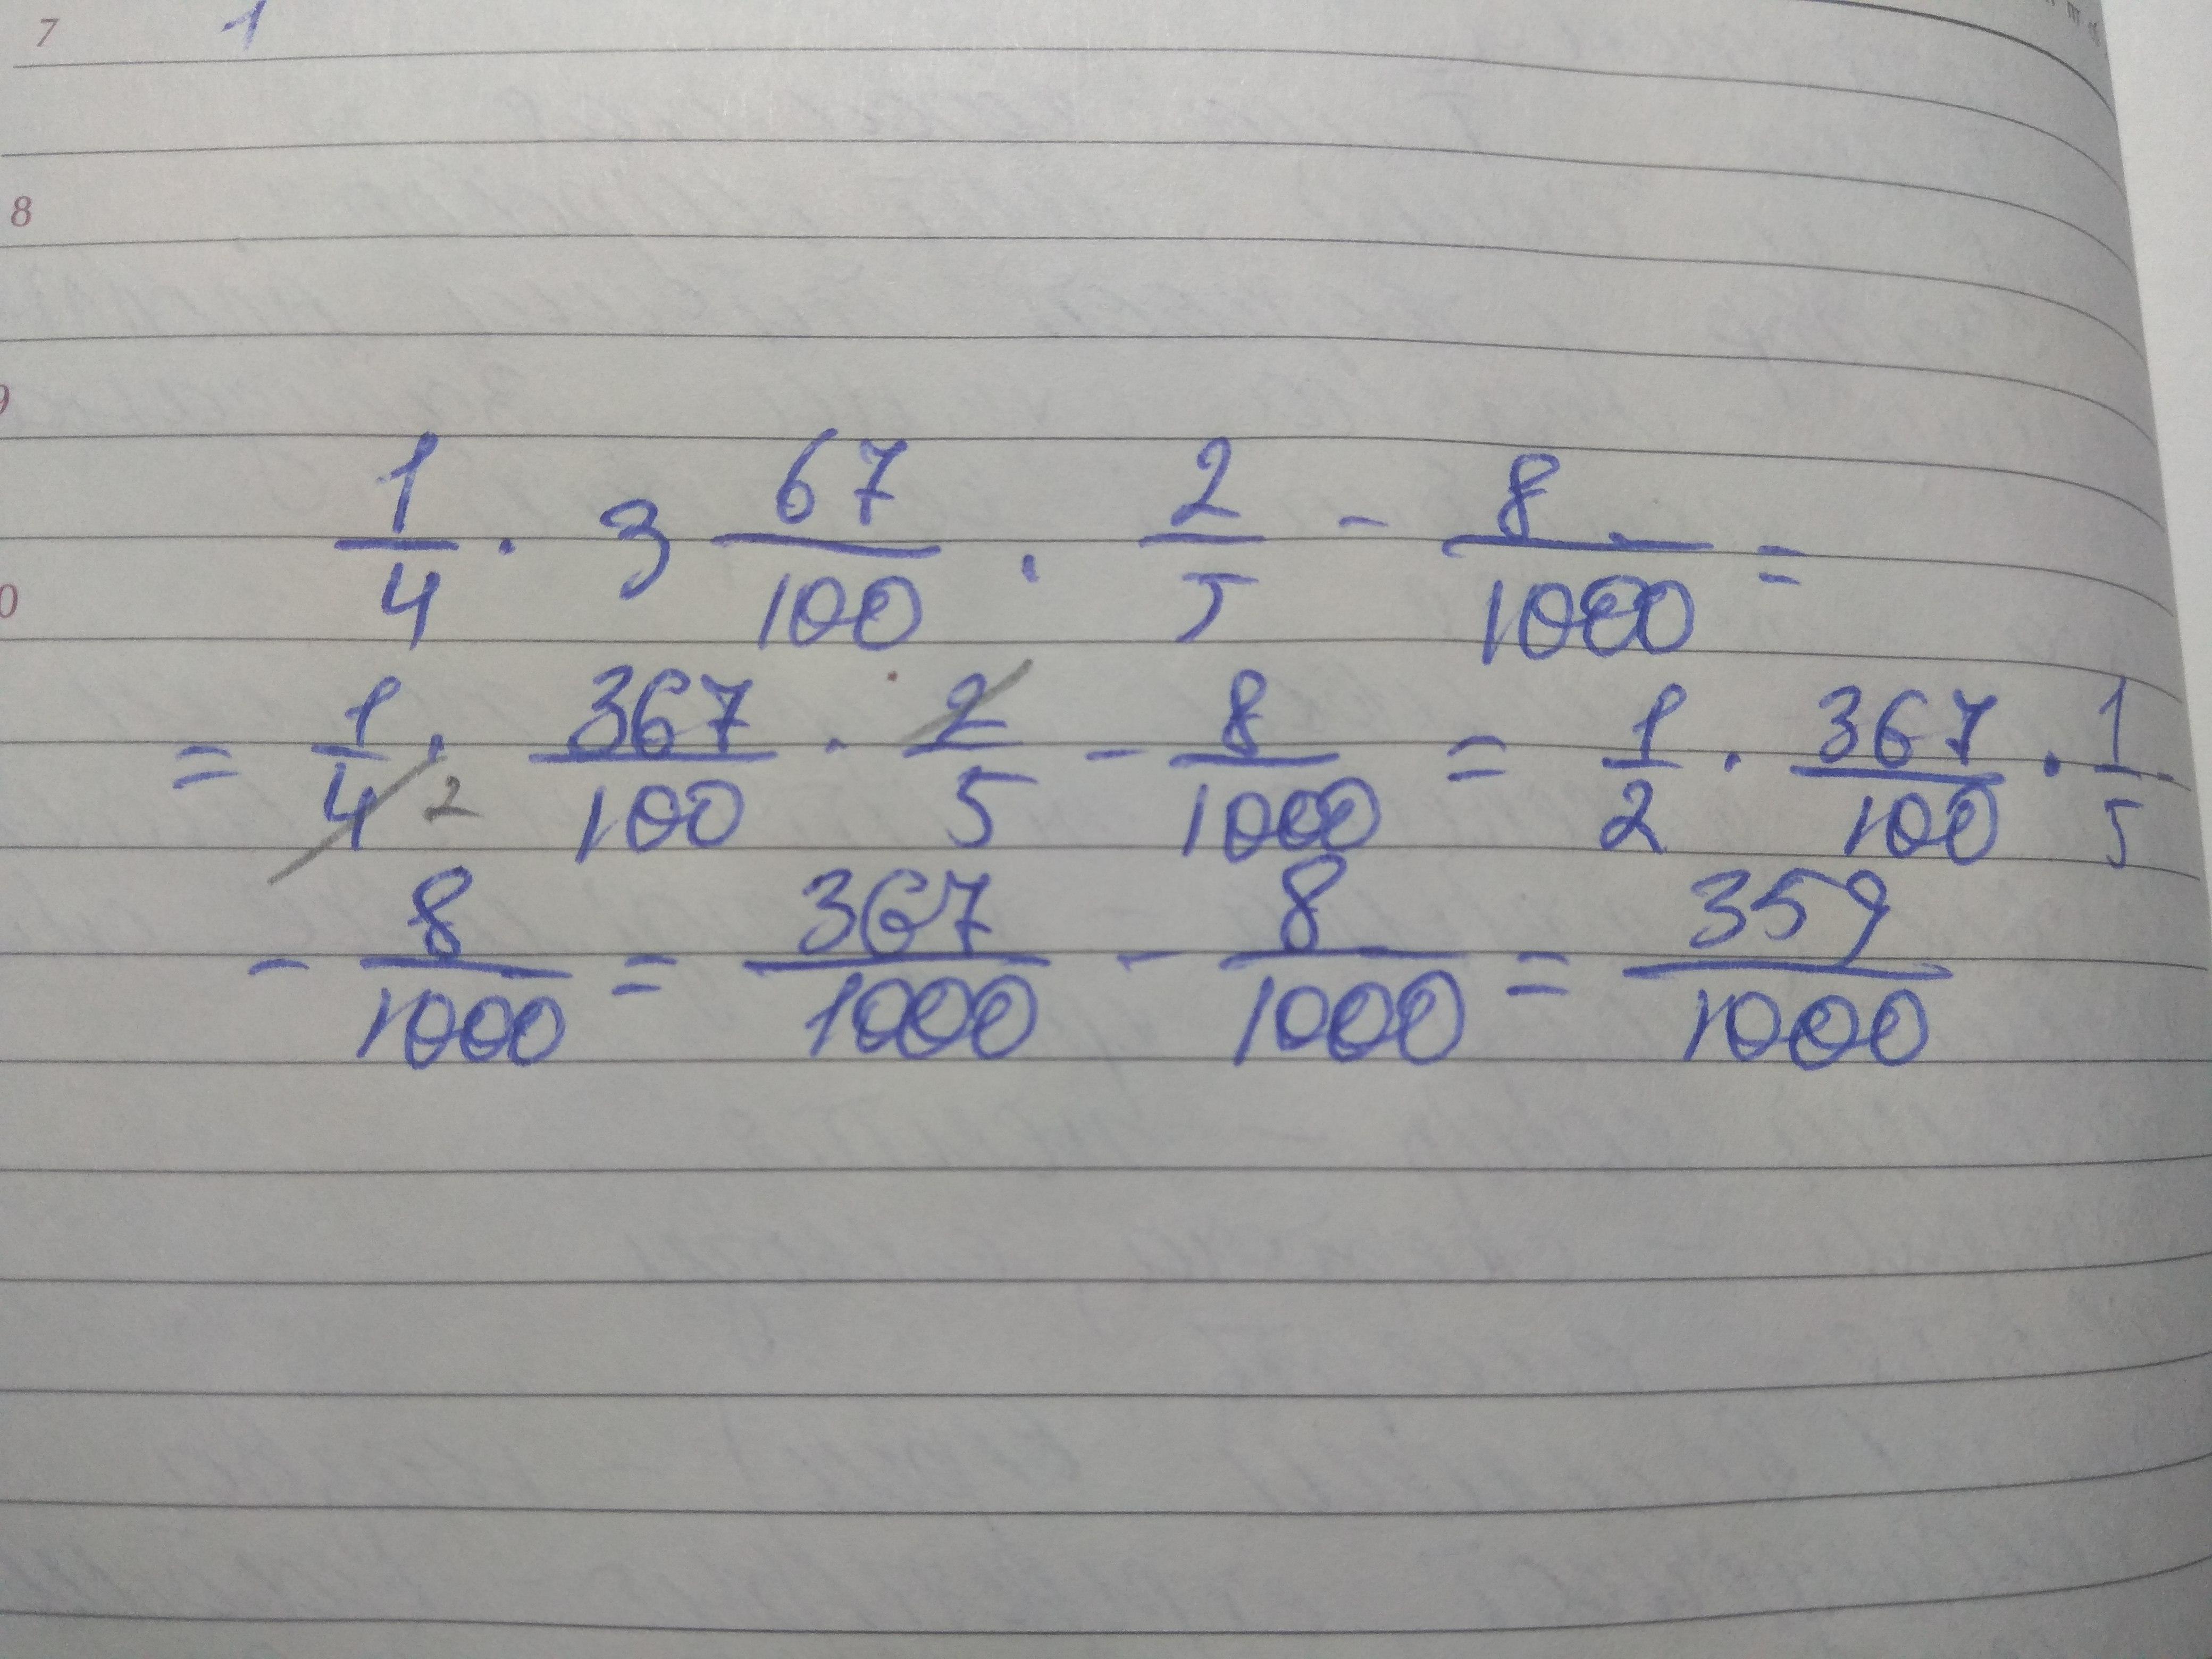 7 1
8
9
0
1/4 · 3 67/100 · 2/5 - 8/1000 =
= 1/4 2 · 367/100 · 2/5 - 8/1000 = 1/2 · 367/100 · 1/5
- 8/1000 = 367/1000 - 8/1000 = 359/1000